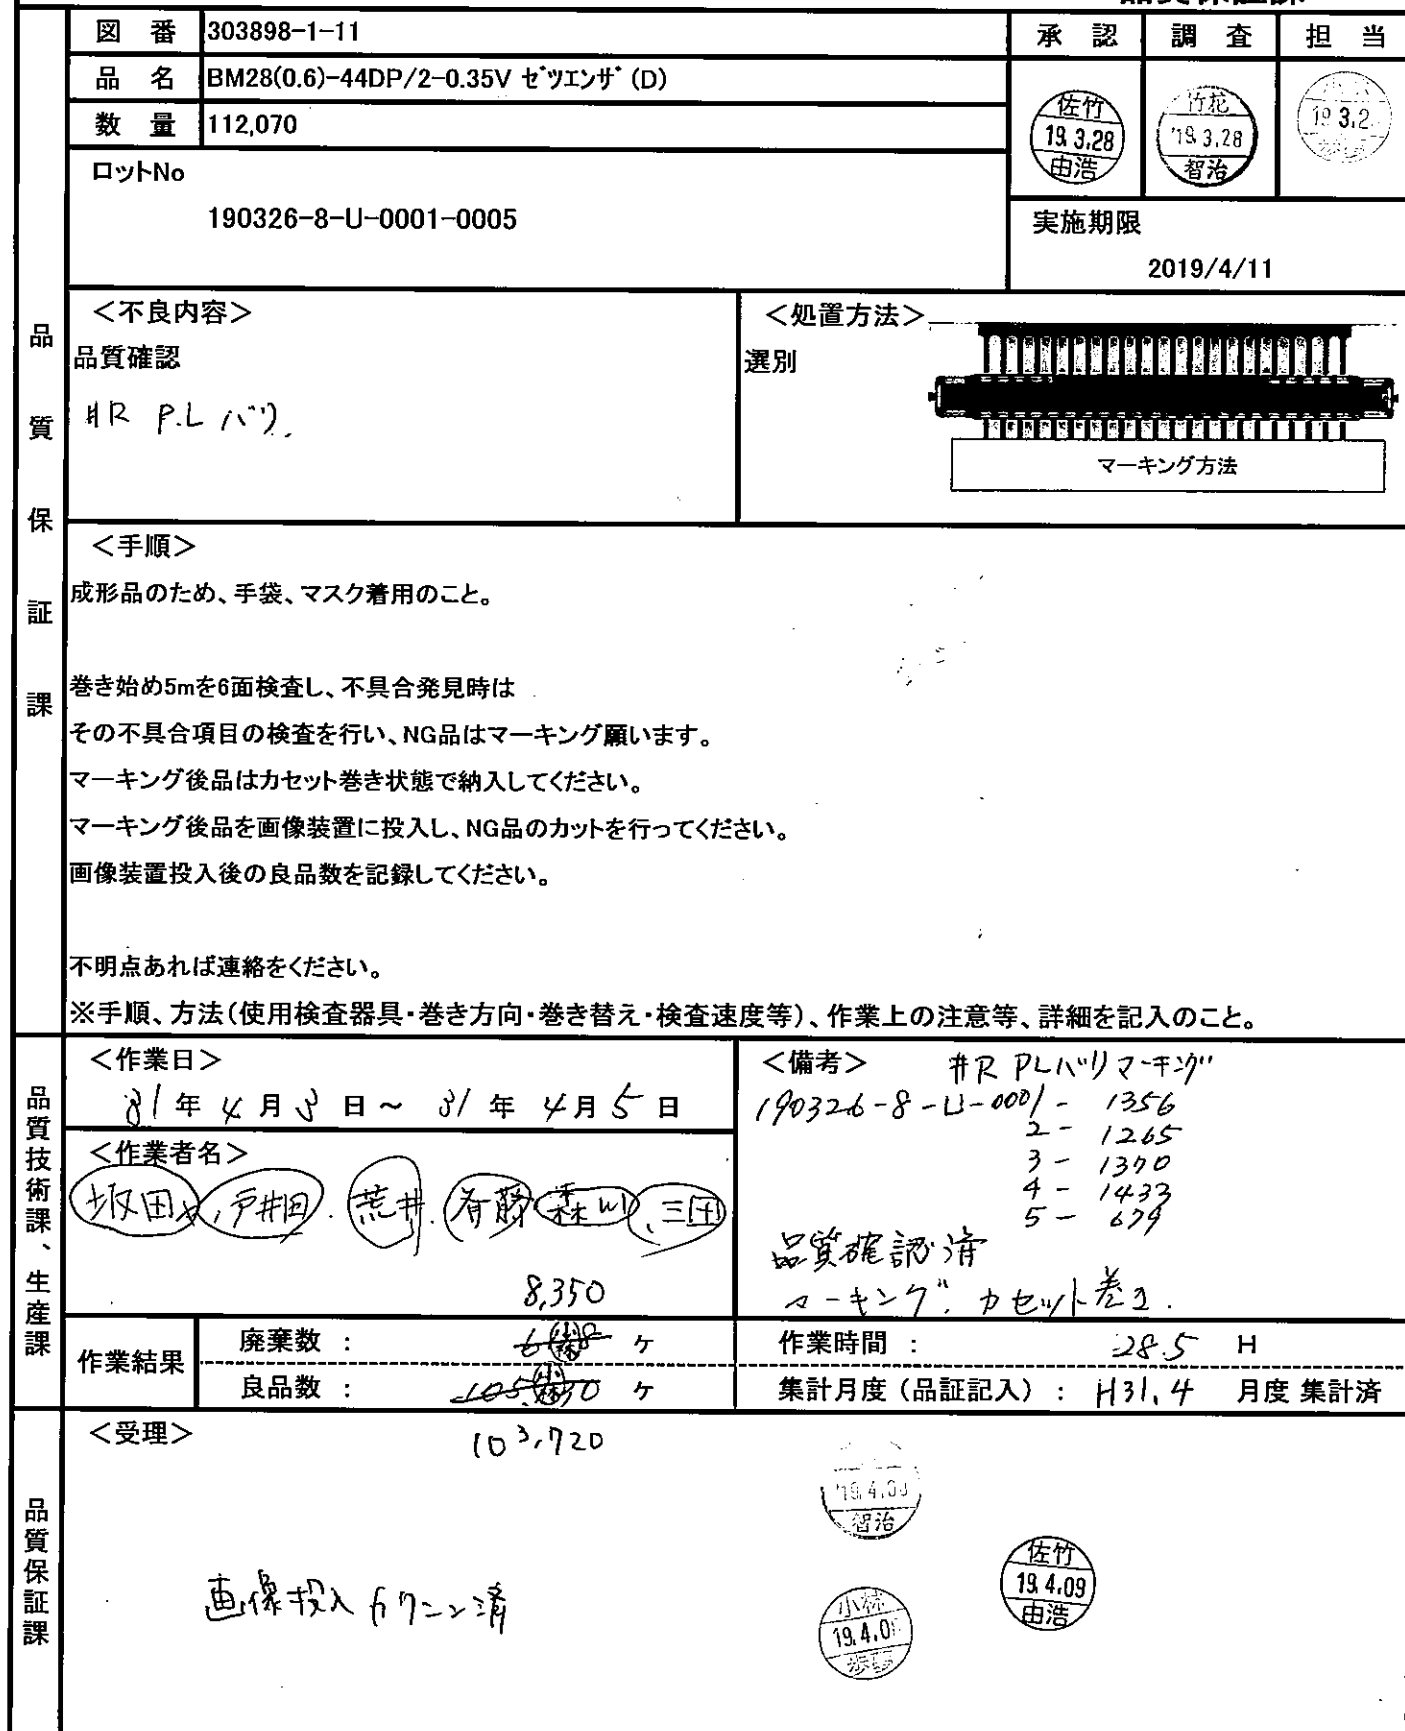 図番 303898-1-11
品名 BM28(0.6)-44DP/2-0.35V ｾﾞﾂｴﾝｻﾞ(D)
数量 112,070
ロットNo
190326-8-U-0001-0005
承認 調査 担当
佐竹 19.3.28 由浩
竹花 '19.3.28 智治
19.3.2
実施期限
2019/4/11
品質保証課
＜不良内容＞
品質確認
#R P.L バリ.
＜処置方法＞
選別
マーキング方法
＜手順＞
成形品のため、手袋、マスク着用のこと。
巻き始め5mを6面検査し、不具合発見時は
その不具合項目の検査を行い、NG品はマーキング願います。
マーキング後品はカセット巻き状態で納入してください。
マーキング後品を画像装置に投入し、NG品のカットを行ってください。
画像装置投入後の良品数を記録してください。
不明点あれば連絡をください。
※手順、方法（使用検査器具・巻き方向・巻き替え・検査速度等）、作業上の注意等、詳細を記入のこと。
品質技術課、生産課
＜作業日＞
31年4月3日～31年4月5日
＜作業者名＞
坂田 戸井田 荒井 斉藤 森山 三田
＜備考＞ #R PLバリマーキング
190326-8-U-0001- 1356
2- 1265
3- 1370
4- 1433
5- 679
品質確認済
マーキング. カセット巻き.
作業結果
8,350
廃棄数： ケ
良品数： ケ
103,720
作業時間： 28.5 H
集計月度（品証記入）： H31.4 月度 集計済
品質保証課
＜受理＞
画像投入カウント済
智治
小林 19.4.0
佐竹 19.4.09 由浩